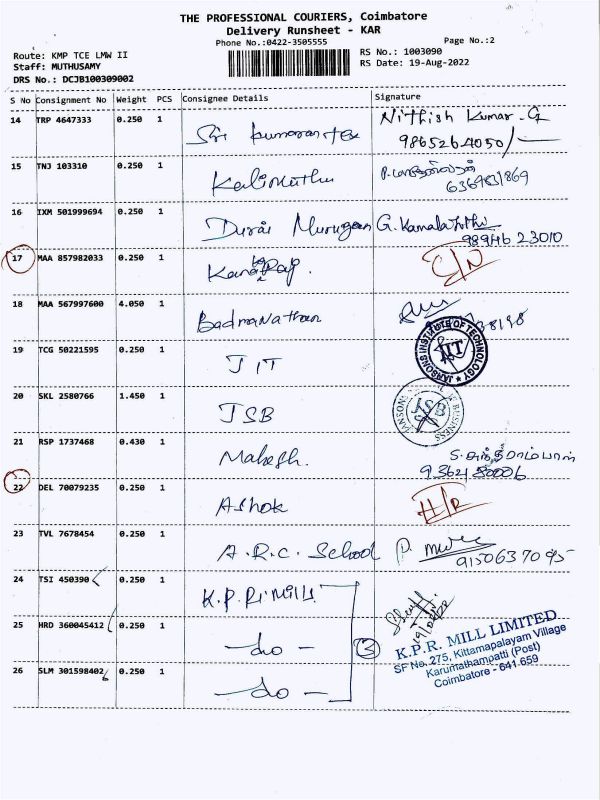 THE PROFESSIONAL COURIERS, Coimbatore
Delivery Runsheet - KAR
Phone No.:0422-3505555
Page No.:2
Route: KMP TCE LMW II
Staff: MUTHUSAMY
DRS No.: DCJB100309002
RS No.: 1003090
RS Date: 19-Aug-2022
S No Consignment No Weight PCS Consignee Details Signature
14 TRP 4647333 0.250 1 Sri Kumaran Tex Nithish Kumar. G
9865264050
15 TNJ 103310 0.250 1 Kalimuthu
6369831869
16 IXM 501999694 0.250 1 Durai Murugan G. Kamalahthi
98946 23010
17 MAA 857982033 0.250 1 C/N
18 MAA 567997600 4.050 1 Badmanathan
38198
19 TCG 50221595 0.250 1 JIT
JANSONS INSTITUTE OF TECHNOLOGY
JIT
20 SKL 2580766 1.450 1 JSB
JANSONS BUSINESS
JSB
21 RSP 1737468 0.430 1 Mahesh.
22 DEL 70079235 0.250 1 Ashok
23 TVL 7678454 0.250 1 A.R.C. School
9150637095
24 TSI 450390 0.250 1 K.P.R. Mills
25 HRD 360045412 0.250 1 - do -
3
26 SLM 301598402 0.250 1 - do -
K.P.R. MILL LIMITED
SF No. 275, Kittamapalayam Village
Karumathampatti (Post)
Coimbatore - 641 659